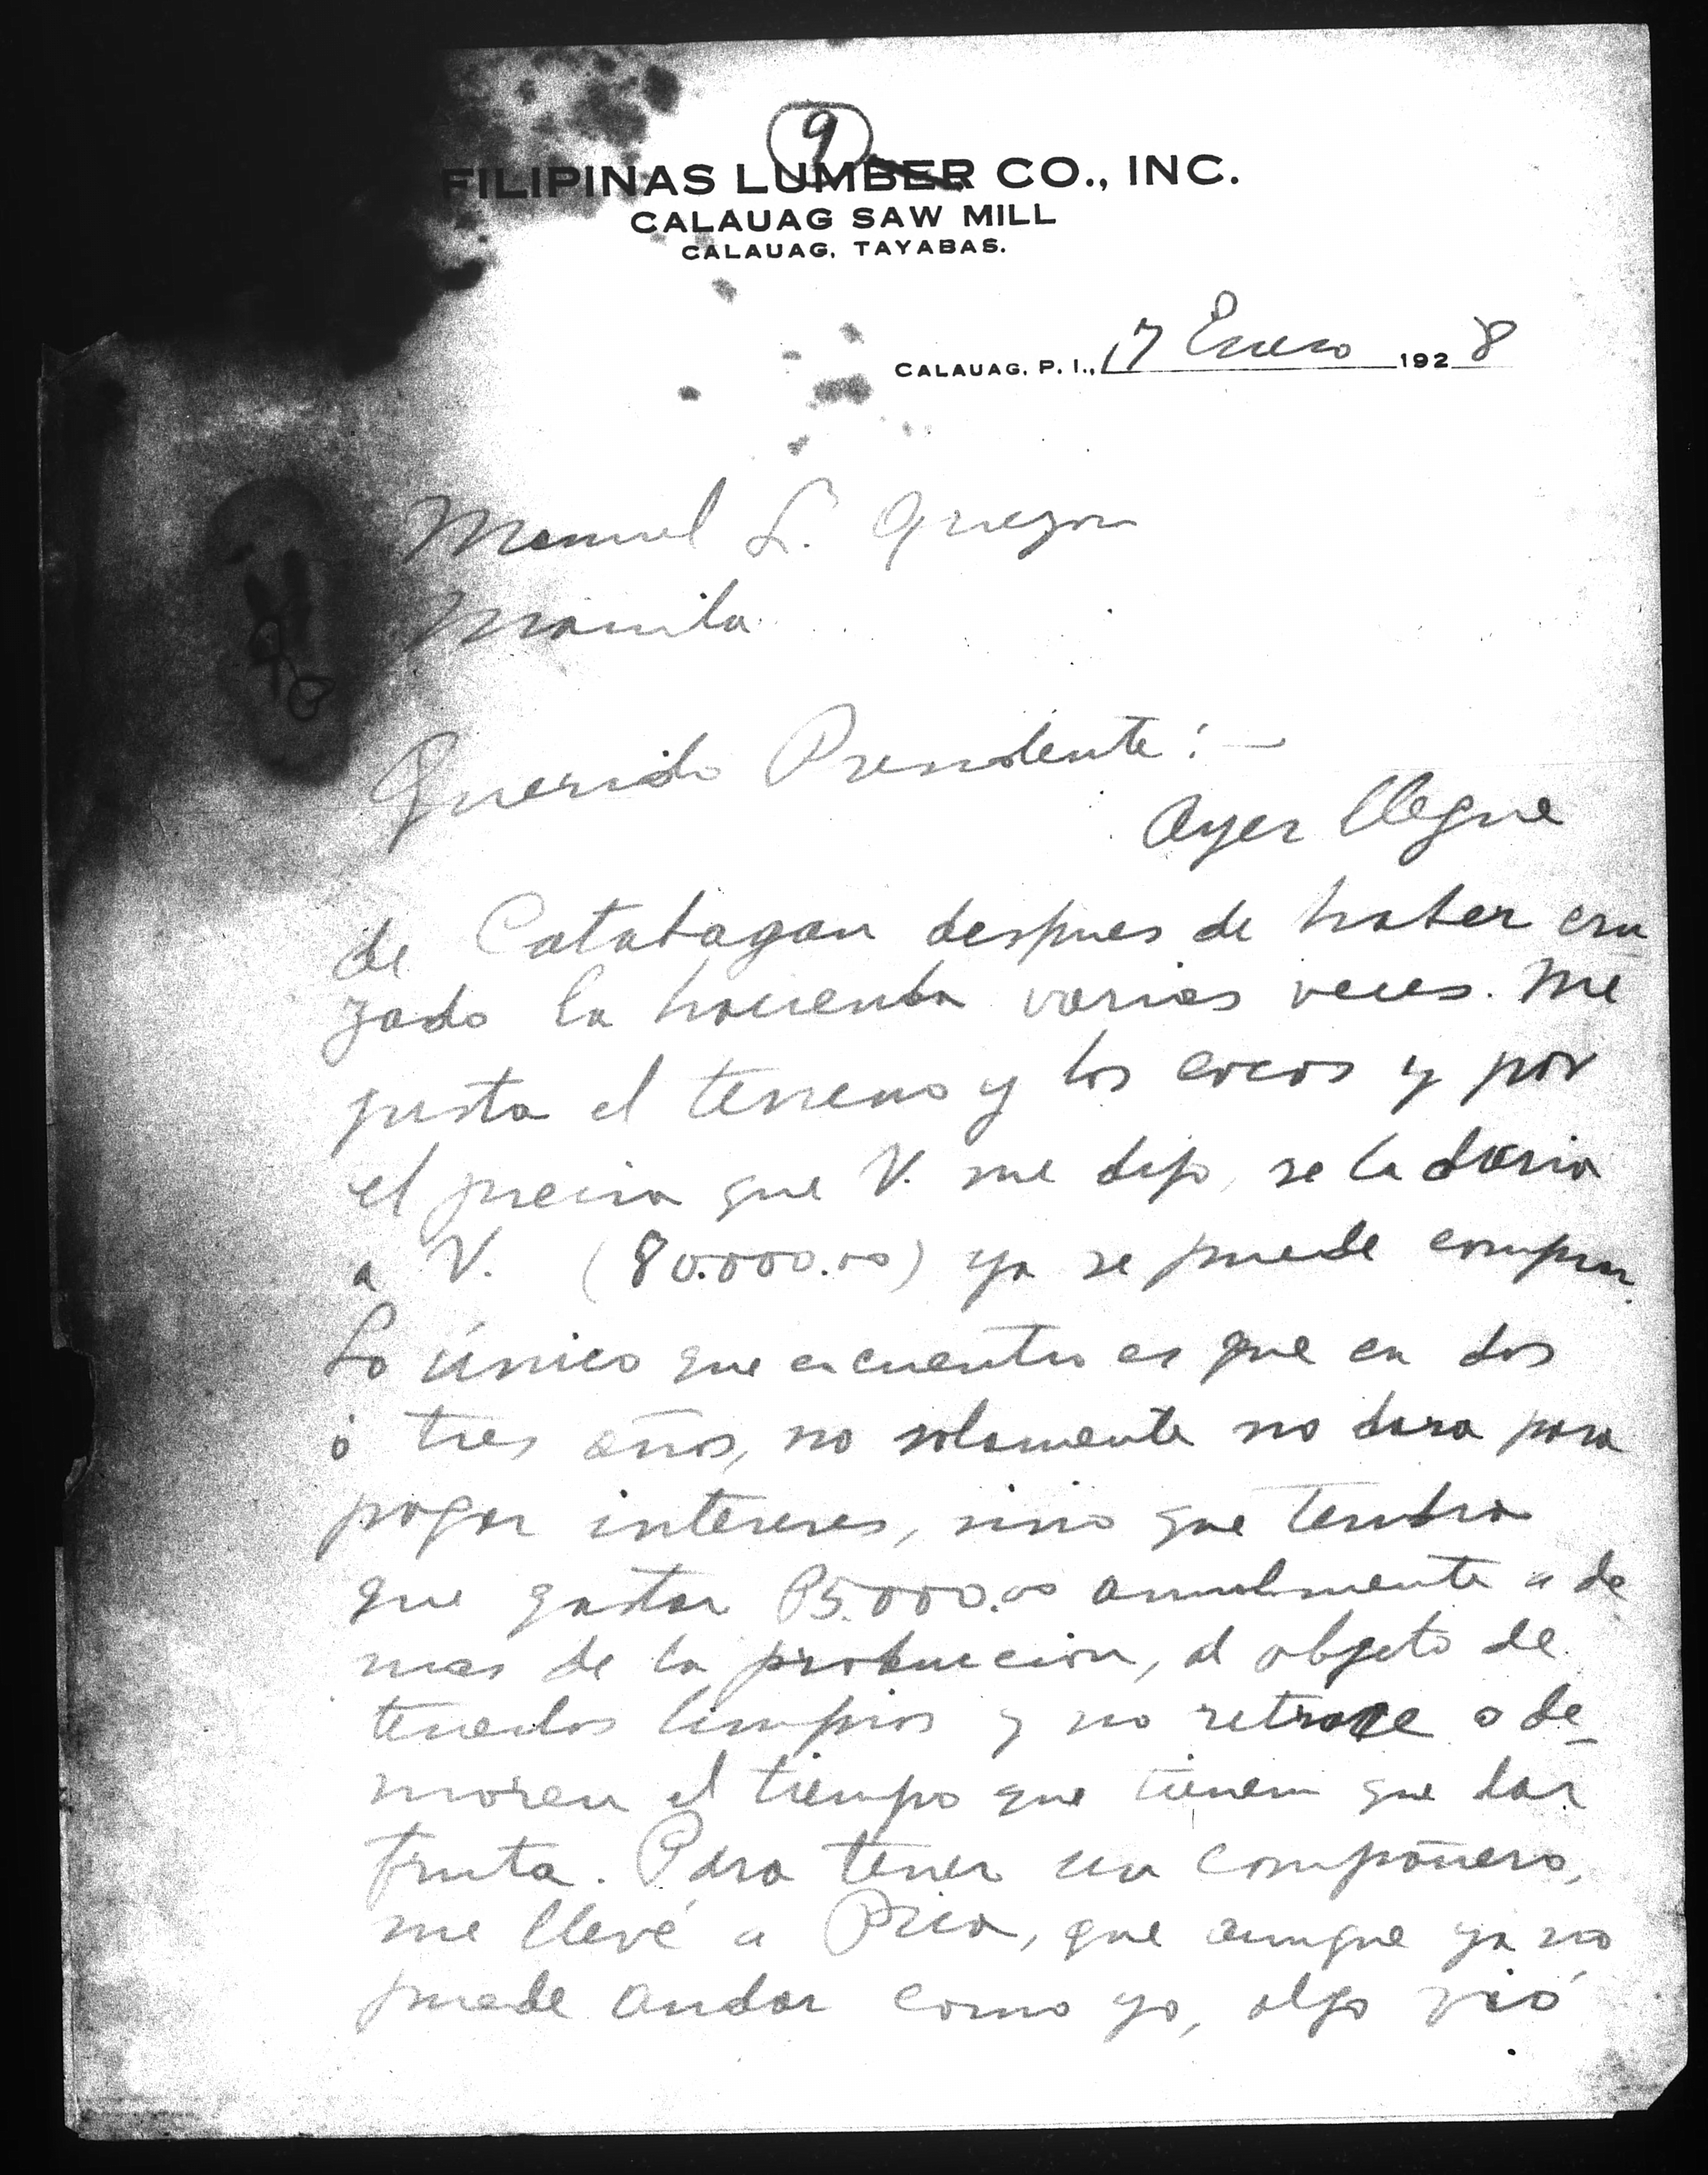 9
FILIPINAS LUMBER CO., INC.
CALAUAG SAW MILL
CALAUAG, TAYABAS.
CALAUAG, P. I., 17 Enero 1928
Manuel L. Quezon
Manila
Querido Presidente: —
Ayer llegue
de Catabagan despues de haber cru
zado la hacienda varias veces. Me
gusta el terreno y los cocos y por
el precio que V. me dijo, se la daria
a V. (80.000.00) ya se puede comprar.
Lo único que encuentro es que en dos
ó tres años, no solamente no dara para
pagar intereses, sino que tendra
que gastar P5.000.00 anualmente a de
mas de la produccion, al objeto de
tenerlos limpios y no retrase o de-
moren el tiempo que tienen que dar
fruta. Para tener un compañero,
me llevé a Pica, que aunque ya no
puede andar como yo, algo vió